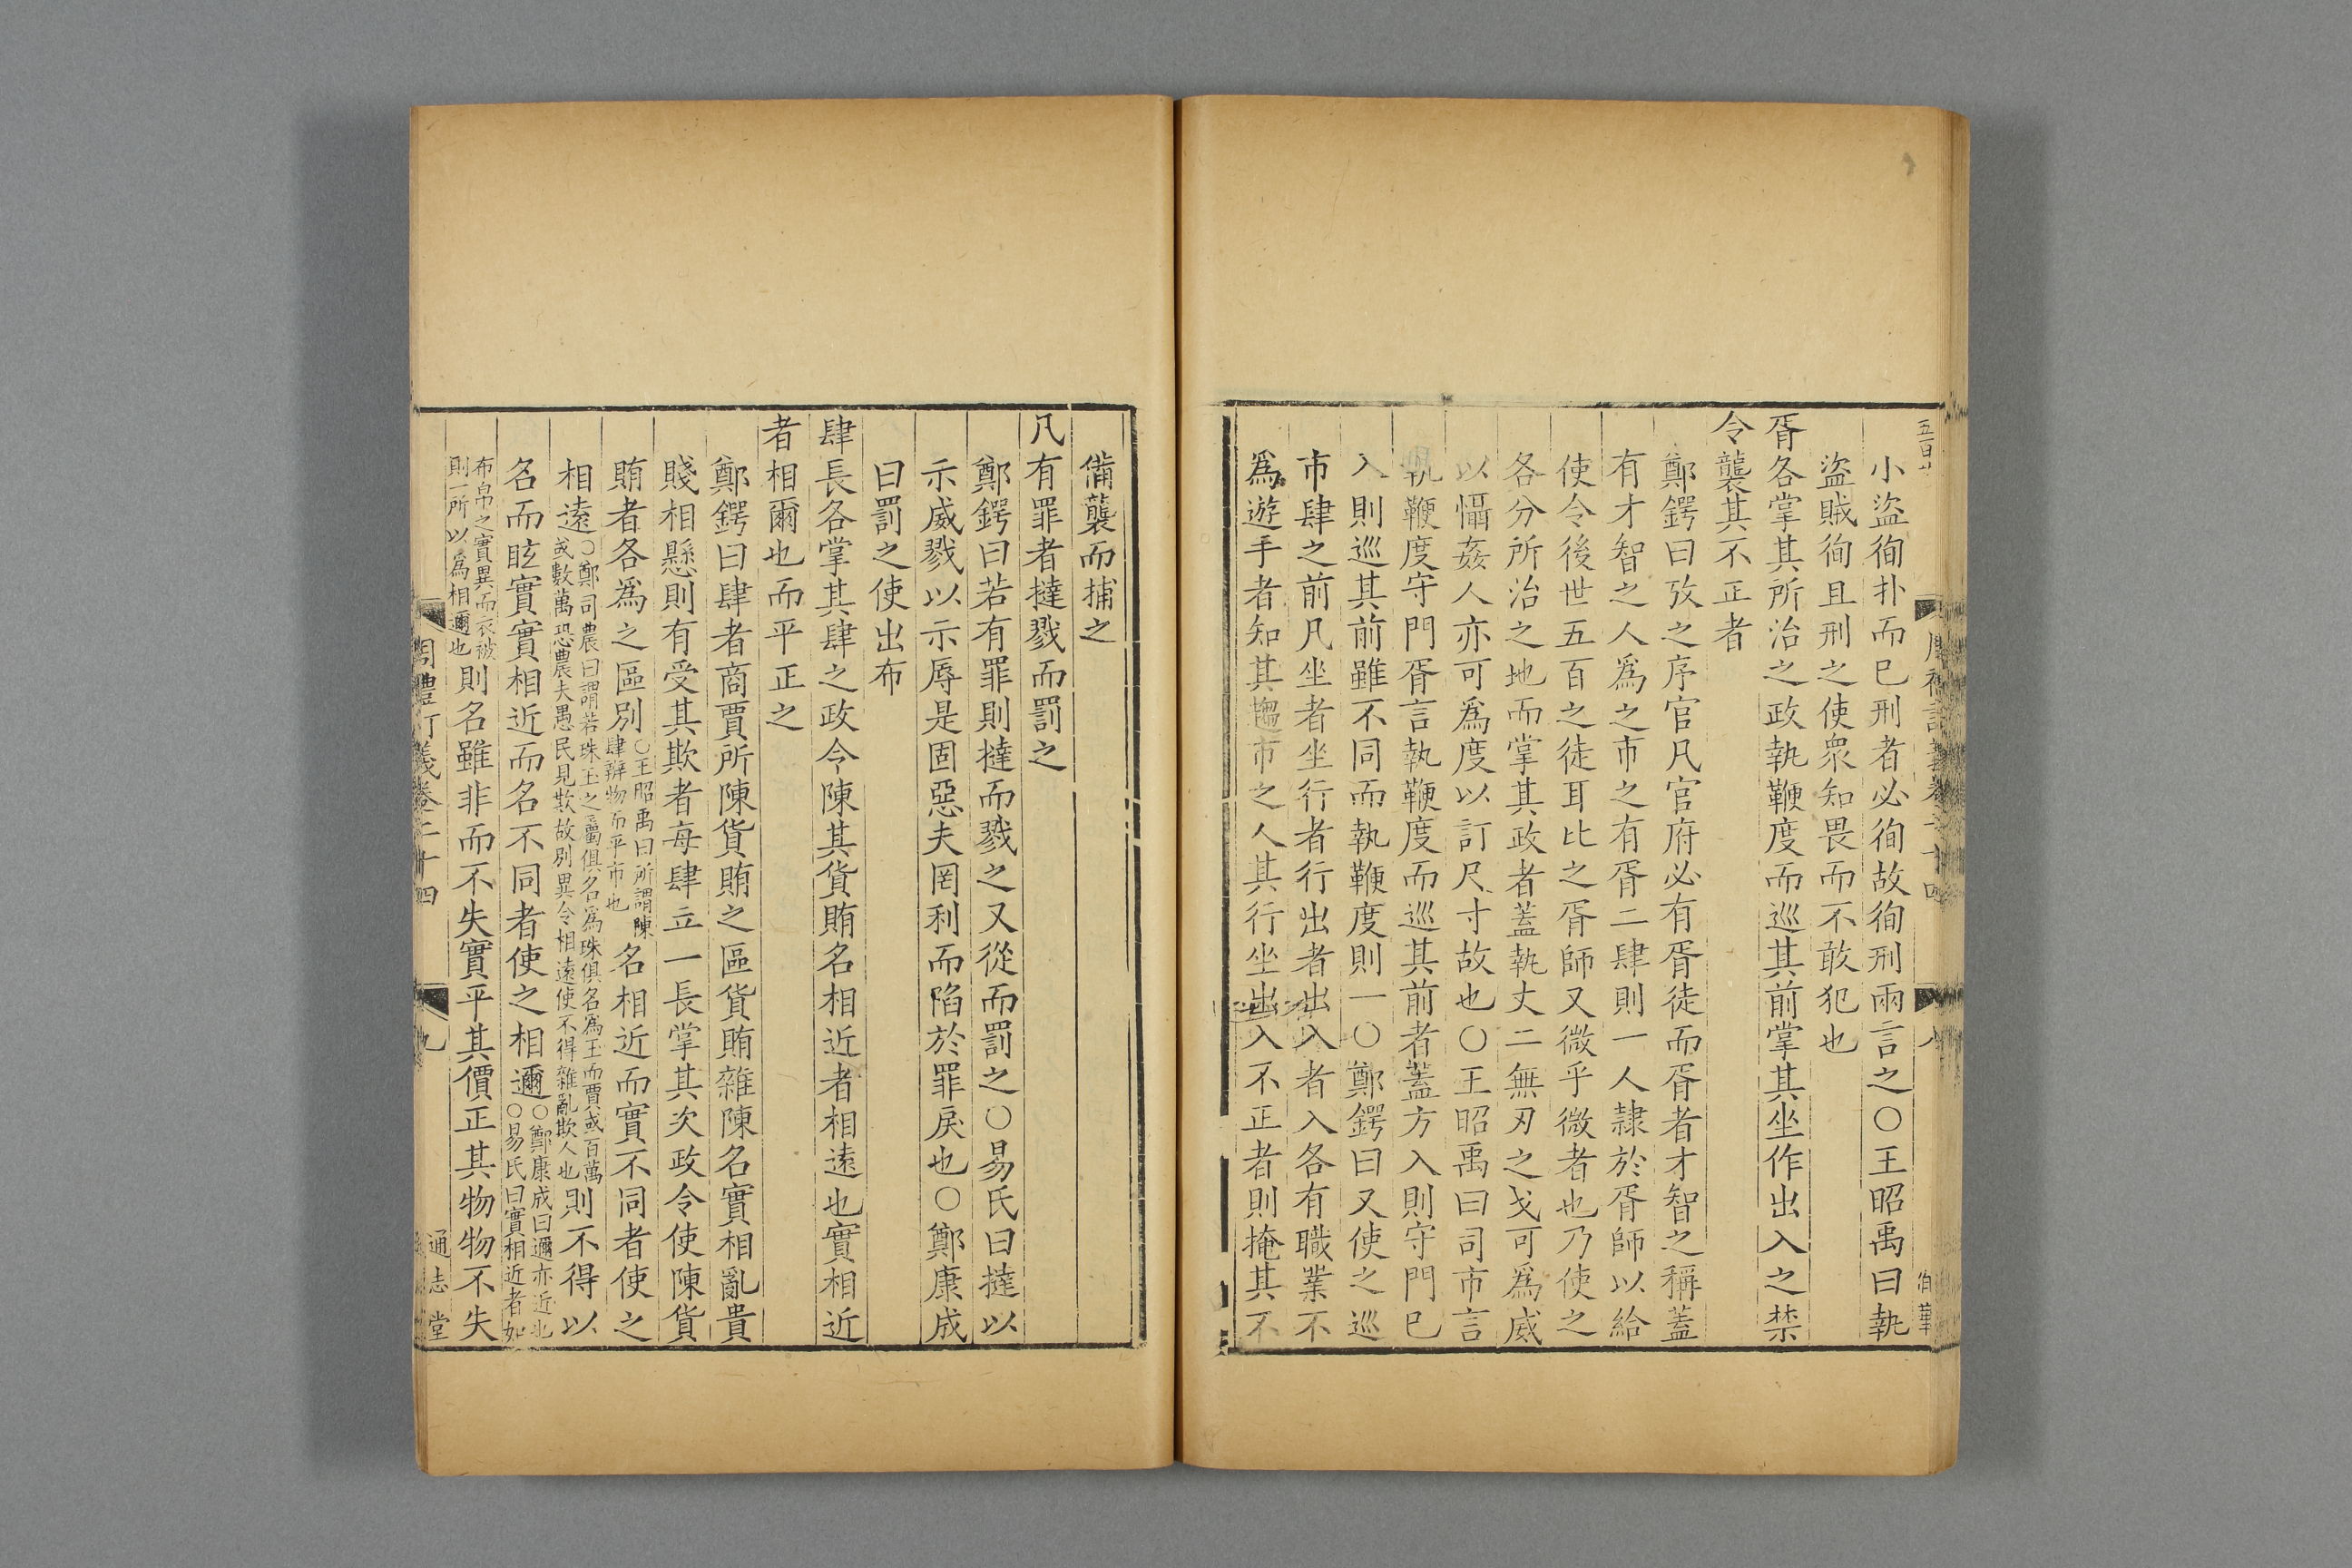 小盜徇扑而巳刑者必徇故徇刑兩言之〇王昭禹曰執
盜賊徇且刑之使衆知畏而不敢犯也
胥各掌其所治之政執鞭度而巡其前掌其坐作出入之禁
令襲其不正者
鄭鍔曰攷之序官凡官府必有胥徒而胥者才智之稱蓋
有才智之人爲之市之有胥二肆則一人隷於胥師以給
使令後世五百之徒耳比之胥師又微乎微者也乃使之
各分所治之地而掌其政者蓋執丈二無刃之戈可爲威
以懾姦人亦可爲度以訂尺寸故也〇王昭禹曰司市言
執鞭度守門胥言執鞭度而巡其前者蓋方入則守門已
入則巡其前雖不同而執鞭度則一〇鄭鍔曰又使之巡
市肆之前凡坐者坐行者行出者出入者入各有職業不
爲遊手者知其趨市之人其行坐出入不正者則掩其不
備襲而捕之
凡有罪者撻戮而罰之
鄭鍔曰若有罪則撻而戮之又從而罰之〇易氏曰撻以
示威戮以示辱是固惡夫罔利而陷於罪戾也〇鄭康成
曰罰之使出布
肆長各掌其肆之政令陳其貨賄名相近者相遠也實相近
者相爾也而平正之
鄭鍔曰肆者商賈所陳貨賄之區貨賄雜陳名實相亂貴
賤相懸則有受其欺者每肆立一長掌其次政令使陳貨
賄者各爲之區别〇王昭禹曰所謂陳肆辨物而平市也名相近而實不同者使之
相遠〇鄭司農曰謂若珠玉之屬俱名爲珠俱名爲玉而賈或百萬或數萬恐農夫愚民見欺故别異令相遠使不得雜亂欺人也則不得以
名而眩實實相近而名不同者使之相邇〇鄭康成曰邇亦近也〇易氏曰實相近者如
布帛之實異而衣被則一所以爲相邇也則名雖非而不失實平其價正其物物不失
周禮訂義卷二十四
九
通志堂